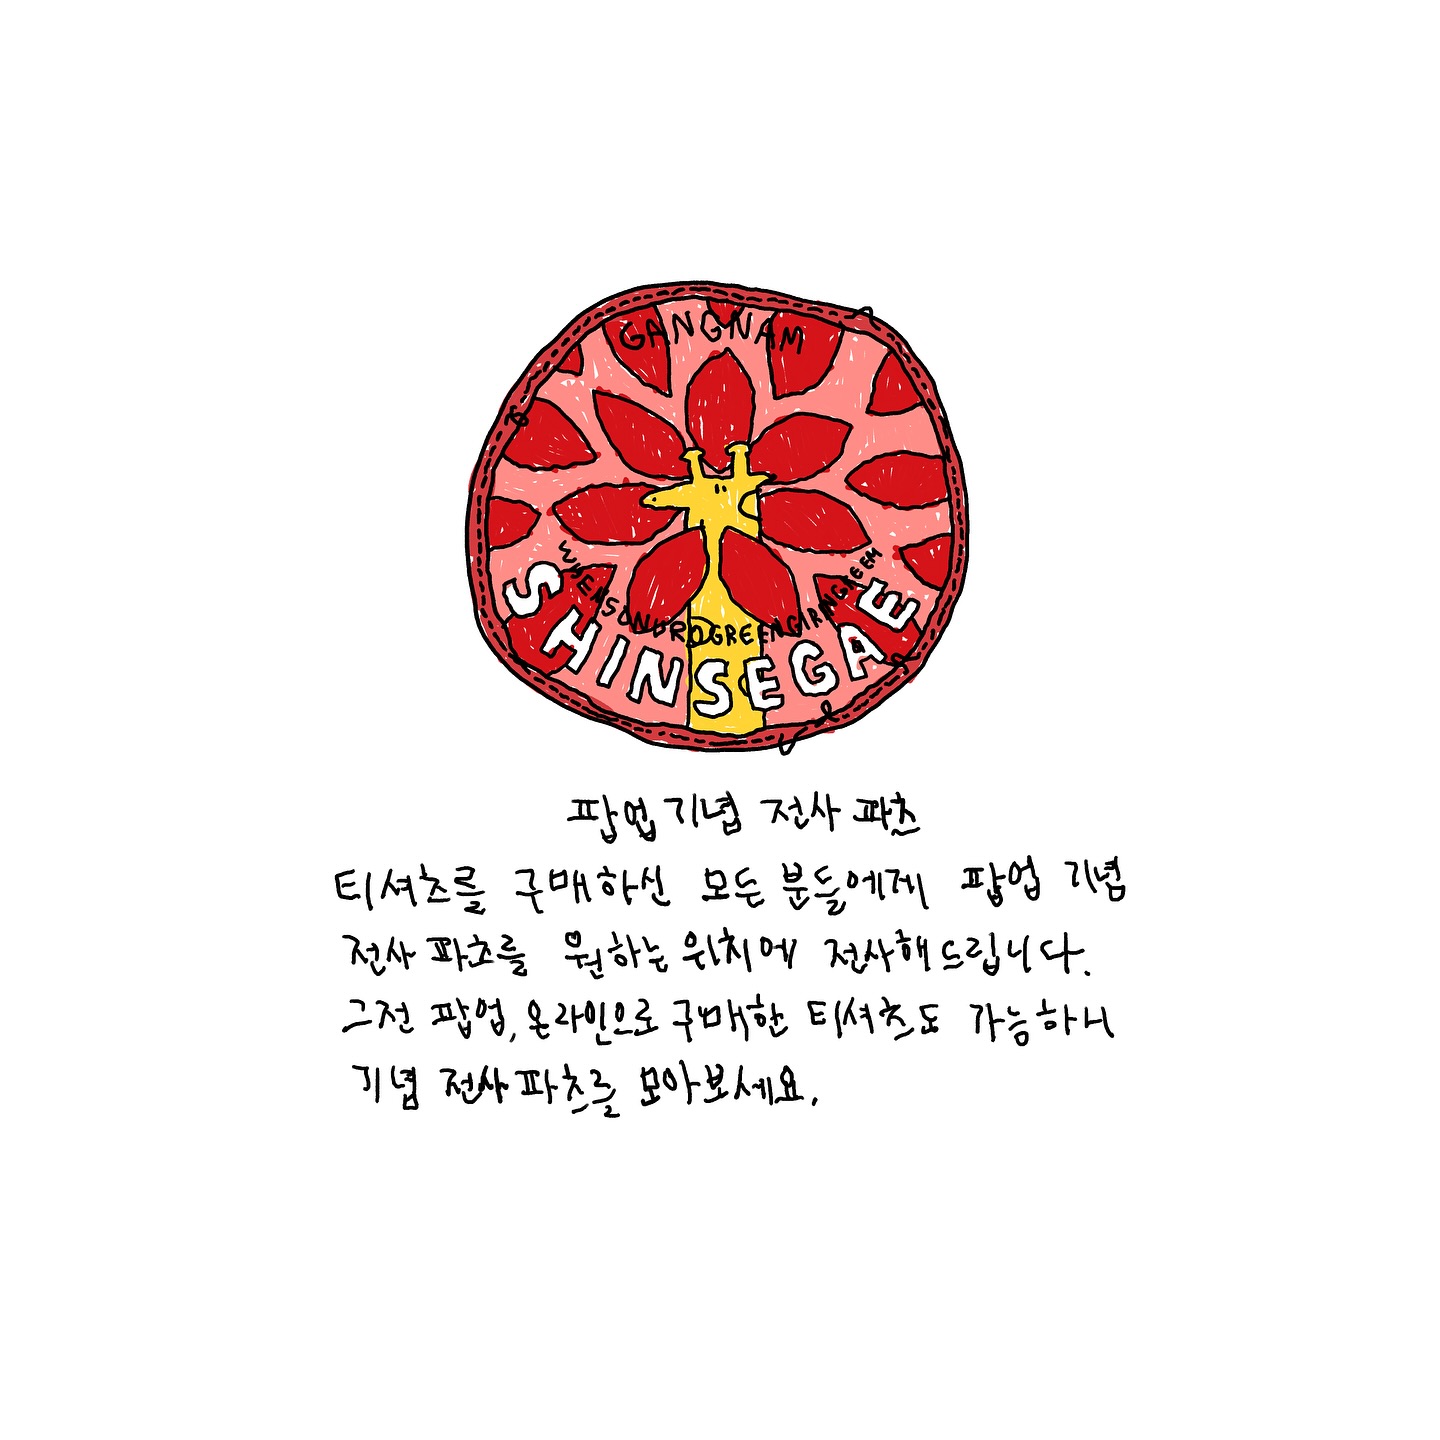 GANGNAM
SHINSEGAE
팝업기념 전사 파츠
티셔츠를 구매하신 모든 분들에게 팝업 기념
전사 파츠를 원하는 위치에 전사해드립니다.
그전 팝업, 온라인으로 구매한 티셔츠도 가능하니
기념 전사파츠를 모아보세요.